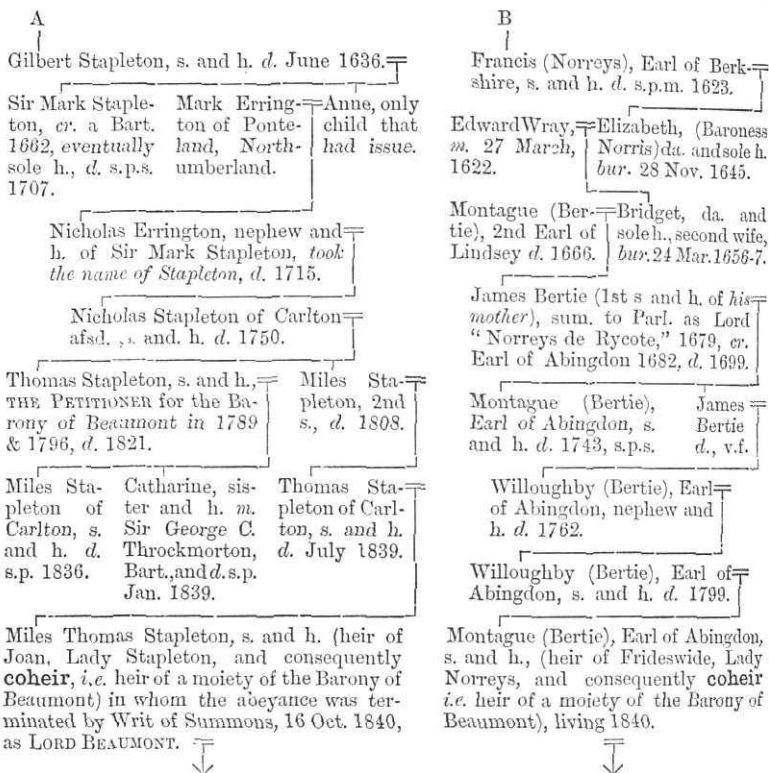 A
Gilbert Stapleton, s. and h. d. June 1636.
Sir Mark Staple-
ton, cr. a Bart.
1662, eventually
sole h., d. s.p.s.
1707.
Mark Erring-
ton of Ponte-
land, North-
umberland.
Anne, only
child that
had issue.
Nicholas Errington, nephew and
h. of Sir Mark Stapleton, took
the name of Stapleton, d. 1715.
Nicholas Stapleton of Carlton
afsd., s. and. h. d. 1750.
Thomas Stapleton, s. and h.,
THE PETITIONER for the Ba-
rony of Beaumont in 1789
& 1796, d. 1821.
Miles Sta-
pleton, 2nd
s., d. 1808.
Miles Sta-
pleton of
Carlton, s.
and h. d.
s.p. 1836.
Catharine, sis-
ter and h. m.
Sir George C.
Throckmorton,
Bart., and d. s.p.
Jan. 1839.
Thomas Sta-
pleton of Carl-
ton, s. and h.
d. July 1839.
Miles Thomas Stapleton, s. and h. (heir of
Joan, Lady Stapleton, and consequently
coheir, i.e. heir of a moiety of the Barony of
Beaumont) in whom the abeyance was ter-
minated by Writ of Summons, 16 Oct. 1840,
as LORD BEAUMONT.
B
Francis (Norreys), Earl of Berk-
shire, s. and h. d. s.p.m. 1623.
Edward Wray,
m. 27 March,
1622.
Elizabeth, (Baroness
Norris) da. and sole h.
bur. 28 Nov. 1645.
Montague (Ber-
tie), 2nd Earl of
Lindsey d. 1666.
Bridget, da. and
sole h., second wife,
bur. 24 Mar. 1656-7.
James Bertie (1st s and h. of his
mother), sum. to Parl. as Lord
"Norreys de Rycote," 1679, cr.
Earl of Abingdon 1682, d. 1699.
Montague (Bertie),
Earl of Abingdon, s.
and h. d. 1743, s.p.s.
James
Bertie
d., v.f.
Willoughby (Bertie), Earl
of Abingdon, nephew and
h. d. 1762.
Willoughby (Bertie), Earl of
Abingdon, s. and h. d. 1799.
Montague (Bertie), Earl of Abingdon,
s. and h., (heir of Frideswide, Lady
Norreys, and consequently coheir
i.e. heir of a moiety of the Barony of
Beaumont), living 1840.